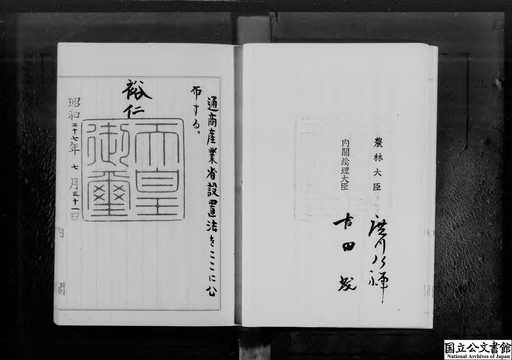 農林大臣
廣川弘禅
内閣総理大臣
吉田茂
通商産業省設置法をここに公
布する。
裕仁
天皇
御璽
昭和二十七年七月三十一日
国立公文書館
National Archives of Japan